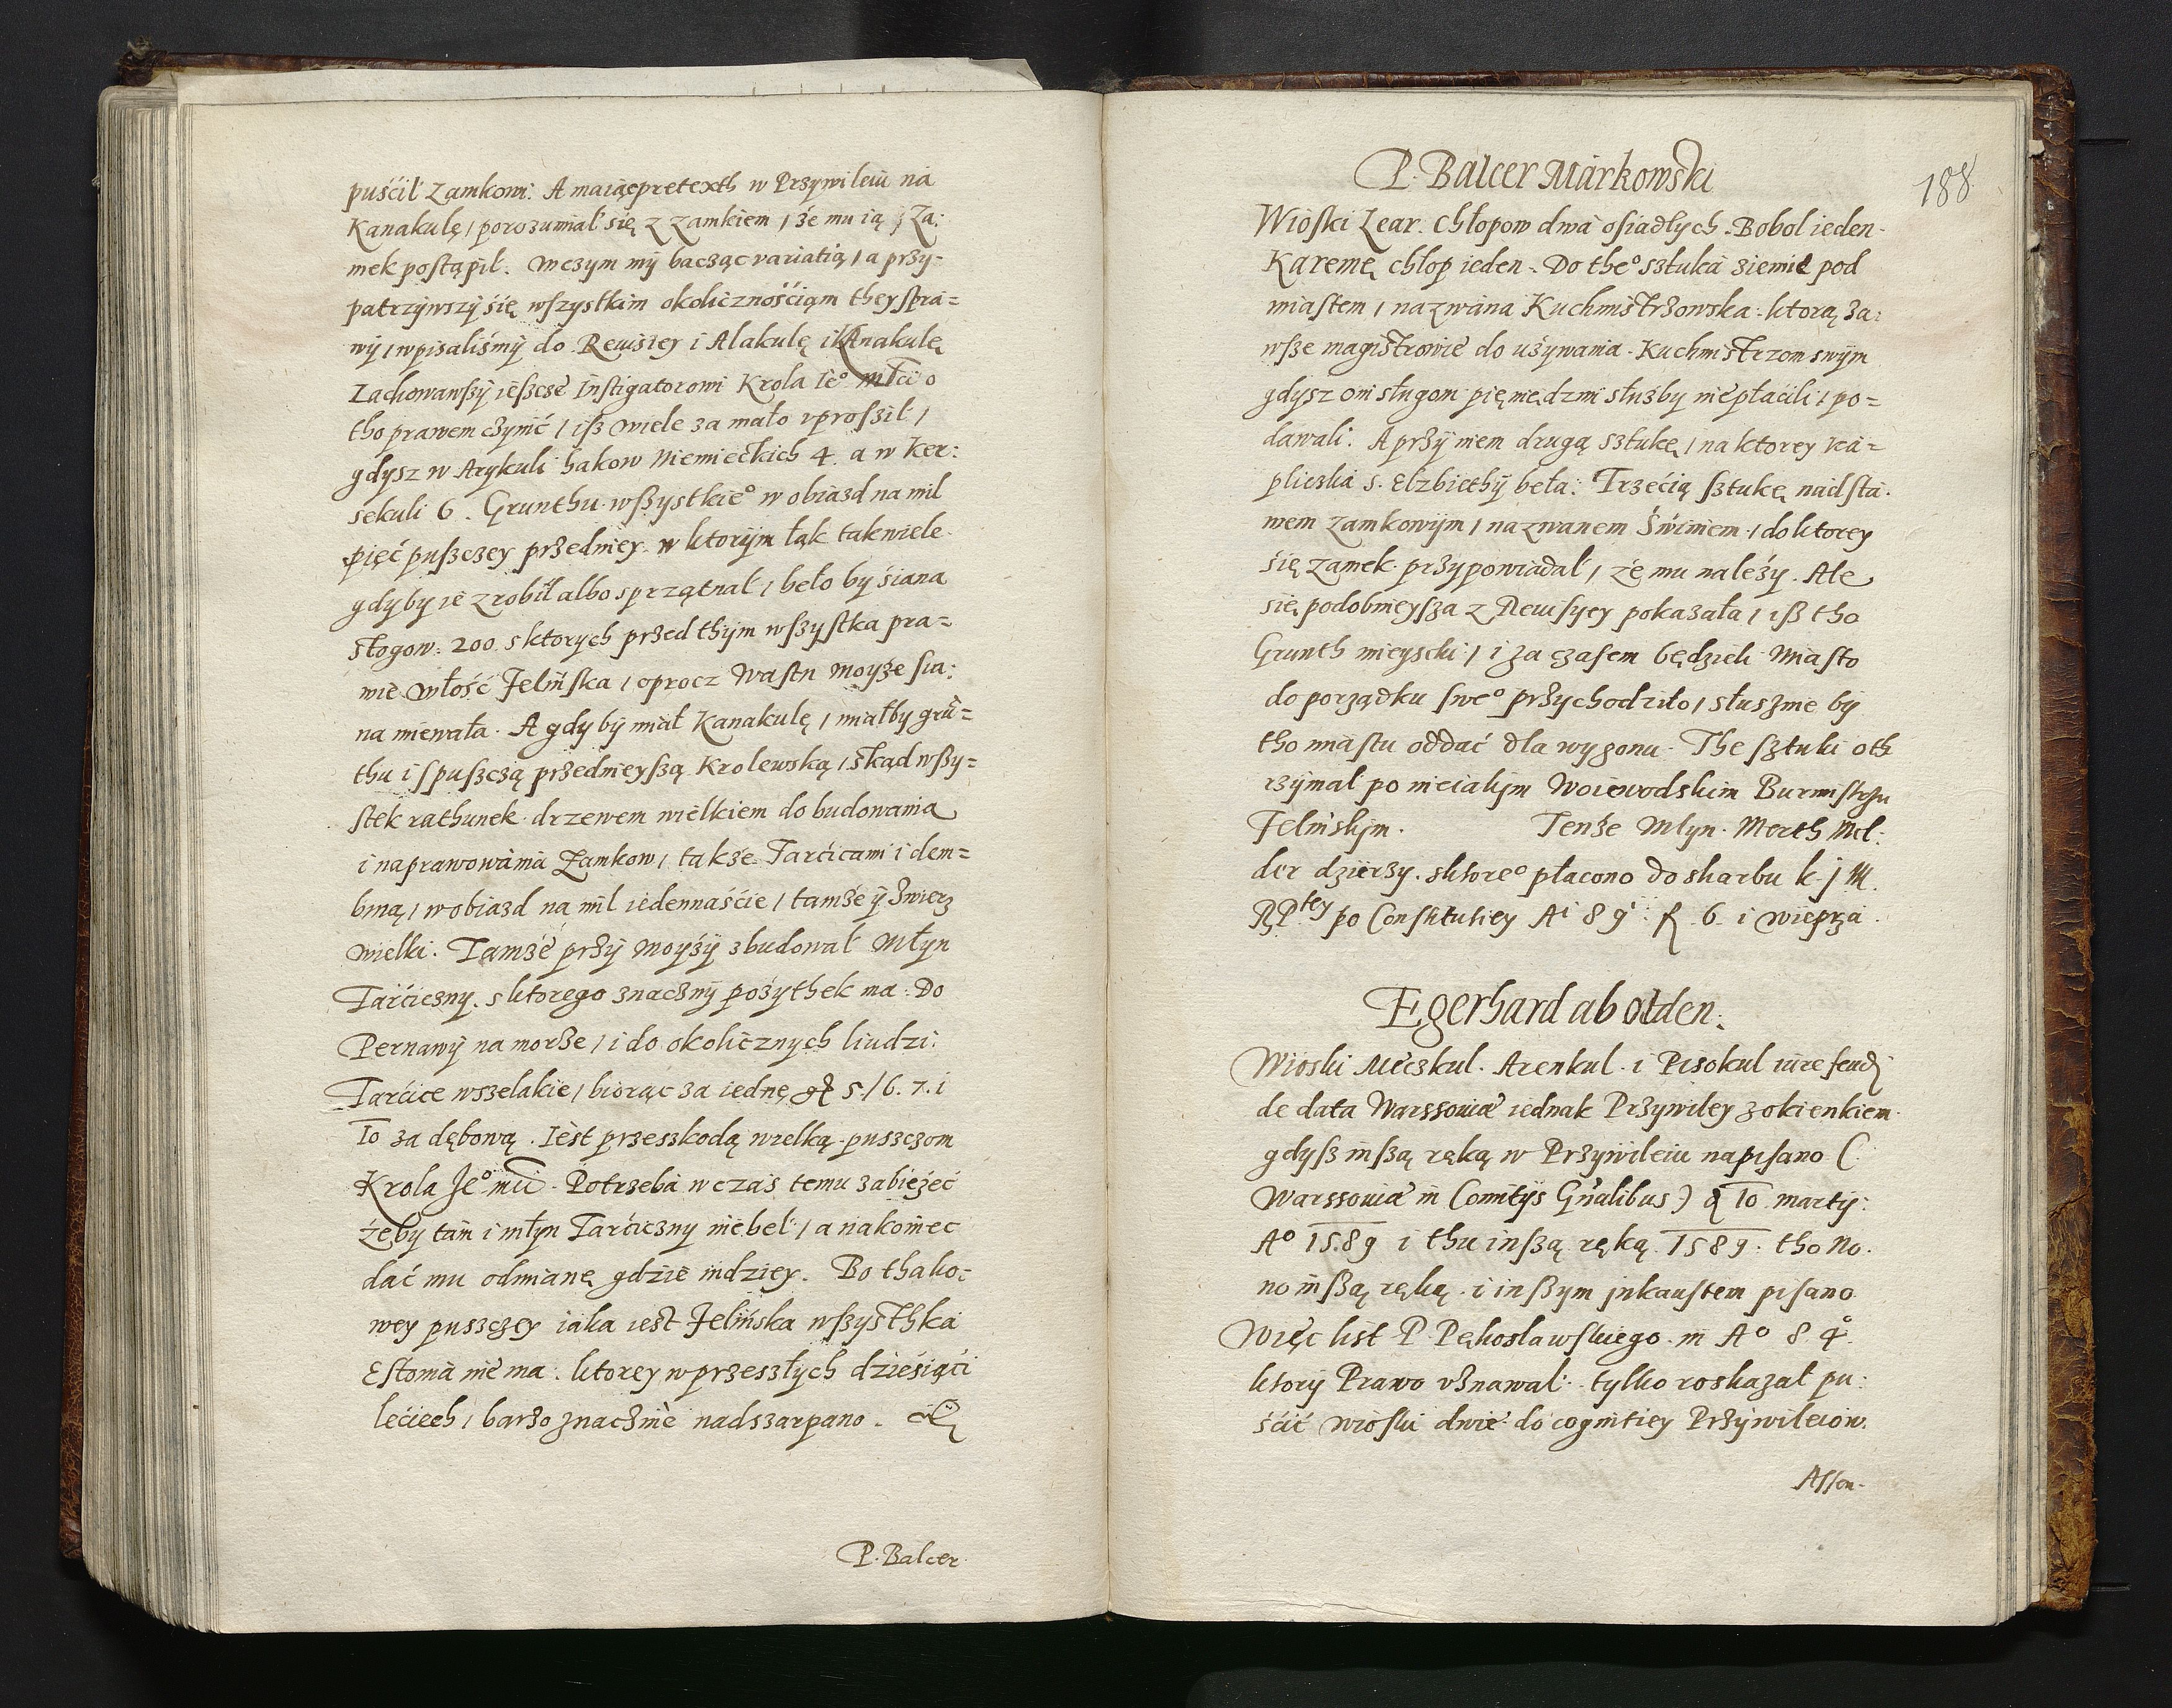 puścił Zamkowi. A maiąc pretexth w Przywileiu na
Kanakulę / porozumiał się z zamkiem / że mu ią Za:
mek postąpił. W czym my bacząc variatią / a przy=
patrzywszy się wszystkim okolicznościąm they spra=
wy / wpisaliśmy do Rewisiey i Alakulę i Kanakulę
Zachowawszy ieszcze Instigatorowi Krola Ie° Mści o
tho prawem czynić / isz wiele za mało vprosził /
gdysz w Arykuli hakow Niemieckich 4. a w Ker:
sekuli 6. Grunthu wszystkie° w obiazd na mil
pięć puszczey przedniey. w ktorym łąk tak wiele
gdyby ie zrobił albo sprzątnał / beło by siana
stogow. 200. s ktorych przed thym wszystka pra=
wie włość Felińska / oprocz Wastn moyze sia:
na miewała. A gdy by miał Kanakulę / miałby grū=
thu i spuszczą przednieyszą Krolewską / skąd wszy=
stek rathunek drzewem wielkiem do budowania
i naprawowania Zamkow / także Tarcicami i dem=
biną / w obiazd na mil iedennaście / tamże y Zwierz
wielki. Tamże przy Moyży zbudował Młyn
Tarciczny. s ktorego znaczny pożythek ma. Do
Pernawy na morze / i do okolicznych liudzi.
Tarcice wszelakie / biorąc za iednę gr 5. / 6. 7. i
10 za dębową. Iest przeszkodą wielką puszczom
Krola Je° mci. Potrzeba w czas temu zabieżeć
żeby tam i młyn Tarciczny nie beł / a nakoniec
dać mu odmianę gdzie indziey. Bo thako:
wey puszczey iaka iest Felińska wszysthka
Estonia nie ma. ktorey w przeszłych dziesiąci
leciech / barzo znacznie nadszarpano.
P. Balcer
188
P. Balcer Markowski
Wioski Lear. Chłopow dwa osiadłych. Bobol ieden.
Karemę chłop ieden. Do the° sztuka ziemie pod
miastem / nazwana Kuchmistrzowska. ktorą za:
wsze magistrowie do używania Kuchmistrzom swym
gdysz oni sługom pieniędzmi służby nie płacili / po=
dawali. A przy niem drugą sztukę / na ktorey ka=
pliczka S. Elzbiethy beła. Trzecią sztukę nad sta.
wem zamkowym / nazwanem Świniem / do ktorey
się zamek przypowiadał / że mu należy. Ale
się podobnieysza z Rewisyey pokazała / isz tho
Grunth mieyscki / i za czasem będzieli Miasto
do porządku swe° przychodziło / słusznie by
tho miastu oddać dla wygonu. The sztuki oth
rzymał po nieiakym Woiewodskim Burmistrzu
Felinskym. Tenże Młyn. Merth Mel:
der dzierzy. s ktore° płacono do skarbu k. j m.
RP^tey po Constitutiey Ai 89: f. 6. i wieprza.
Egerhard ab olden.
Wioski Meczkul. Arenkul. i Pisokul iure feudi
de data Warssouiæ iednak Przywiley z okienkiem.
gdysz inszą ręką w Przywileiu napisano (
Warssouiæ in Comitijs Gn̄alibus) d 10 martij.
A° 1589 i thu inszą ręką 1589. tho No.
no inszą ręką. i inszym inkaustem pisano
Więc list P. Pękosławskiego. in A° 84°.
ktory Prawo vznawał. tylko roskazał pu:
ścić wioski dwie do cognitiey Przywileiow.
Asson-